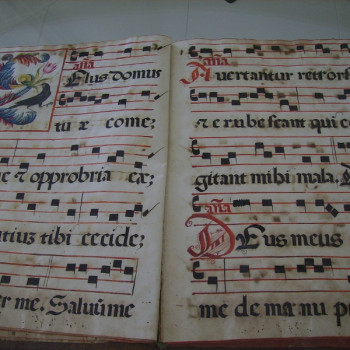 aña
Zelus domus
tuæ come;
e & opprobria ex;
ntius tibi cecide;
er me. Salvū me
aña
Avertantur retrors
& erubescant qui co
gitant mihi mala.
aña
Deus meus
me de manu p